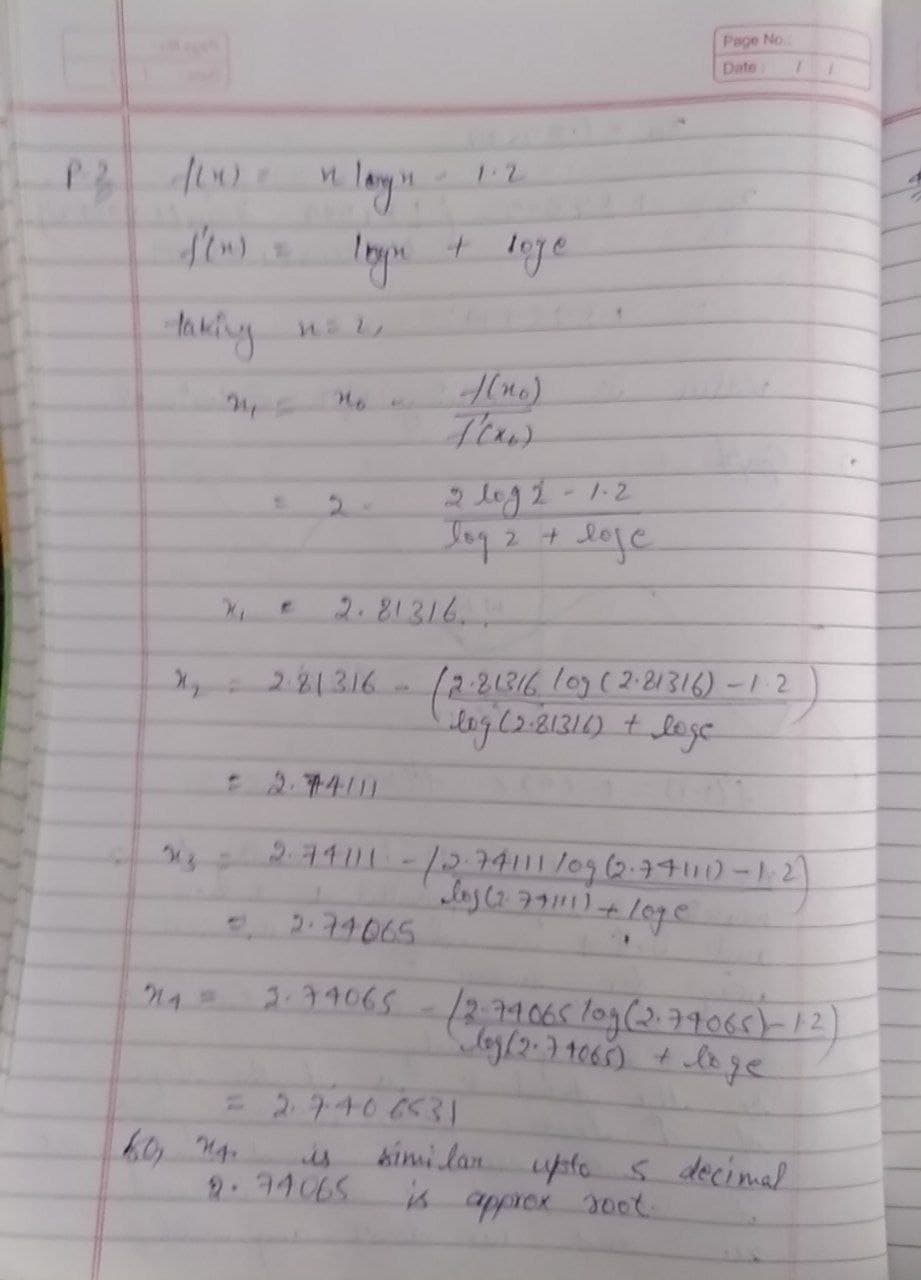 Page No.
Date / /
P.3 f(x) = x log x - 1.2
f'(x) = log x + log e
taking x = 2,
x₁ = x₀ - f(x₀)
f'(x₀)
= 2 - 2 log 2 - 1.2
log 2 + log e
x₁ = 2.81316.
x₂ = 2.81316 - (2.81316 log (2.81316) - 1.2)
log (2.81316) + log e
= 2.74111
x₃ = 2.74111 - (2.74111 log (2.74111) - 1.2)
log (2.74111) + log e
= 2.74065
x₄ = 2.74065 - (2.74065 log (2.74065) - 1.2)
log (2.74065) + log e
= 2.7406531
so, x₄ is similar upto 5 decimal
2.74065 is approx root